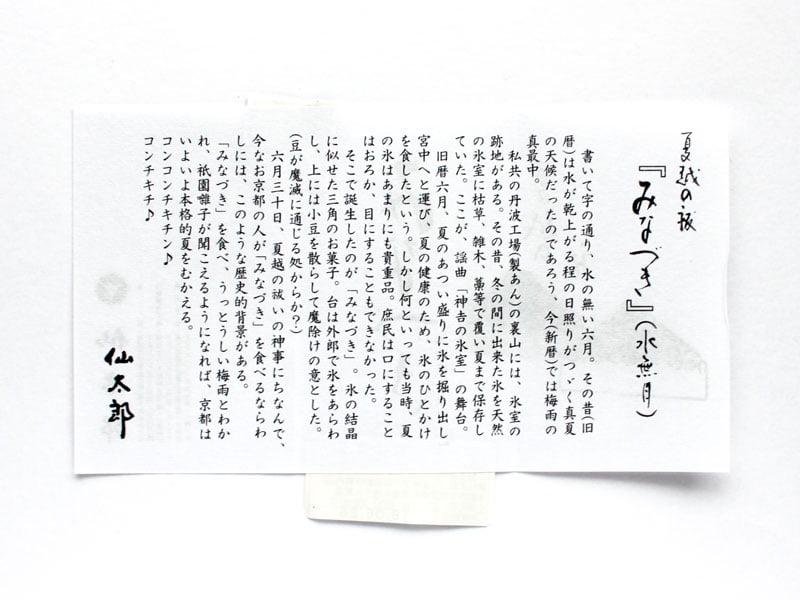 夏越の祓
『みなづき』(水無月)
書いて字の通り、水の無い六月。その昔(旧
暦)は水が乾上がる程の日照りがつゞく真夏
の天候だったのであろう、今(新暦)では梅雨の
真最中。
私共の丹波工場(製あん)の裏山には、氷室の
跡地がある。その昔、冬の間に出来た氷を天然
の氷室に枯草、雑木、藁等で覆い夏まで保存し
ていた。ここが、謡曲「神𠮷の氷室」の舞台。
旧暦六月、夏のあつい盛りに氷を掘り出し
宮中へと運び、夏の健康のため、氷のひとかけ
を食したという。しかし何といっても当時、夏
の氷はあまりにも貴重品。庶民は口にすること
はおろか、目にすることもできなかった。
そこで誕生したのが「みなづき」。氷の結晶
に似せた三角のお菓子。台は外郎で氷をあらわ
し、上には小豆を散らして魔除けの意とした。
(豆が魔滅に通じる処からか?)
六月三十日、夏越の祓いの神事にちなんで、
今なお京都の人が「みなづき」を食べるならわ
しには、このような歴史的背景がある。
「みなづき」を食べ、うっとうしい梅雨とわか
れ、祇園囃子が聞こえるようになれば、京都は
いよいよ本格的夏をむかえる。
コンコンチキチン♪
コンチキチ♪
仙太郎